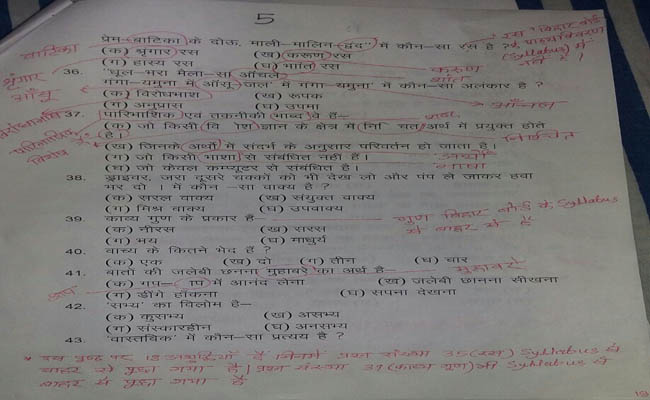 5
प्रेम–वाटिका के दोऊ, माली–मालिन द्वंद" में कौन–सा रस है ?
(क) श्रृगार रस (ख) करूण रस
(ग) हास्य रस (घ) भाति रस
36. 'धूल–भरा मैला–सा आँचल
गंगा–यमुना में आँसू जल' में गंगा–यमुना' में कौन–सा अलंकार है ?
(क) विरोधभाश (ख) रूपक
(ग) अनुप्रास (घ) उपमा
37. पारिभाशिक एवं तकनीकी भाब्द वे हैं–
(क) जो किसी वि ोश ज्ञान के क्षेत्र में नि चत अर्थ में प्रयुक्त होते
है।
(ख) जिनके अर्थो में संदर्भ के अनुसार परिवर्तन हो जाता है।
(ग) जो किसी भाशा से संबंधित नहीं हैं।
(घ) जो केवल कम्प्यूटर से संबंधित है।
38. ड्राइवर, जरा दूसरे चक्कों को भी देख लो और पंप ले जाकर हवा
भर दो । में कौन –सा वाक्य है ?
(क) सरल वाक्य (ख) संयुक्त वाक्य
(ग) मिश्र वाक्य (घ) उपवाक्य
39. काव्य गुण के प्रकार है–
(क) नीरस (ख) सरस
(ग) भय (घ) माधुर्य
40. वाच्य के कितने भेद हैं ?
(क) एक (ख) दो (ग) तीन (घ) चार
41. बातों की जलेबी छनना मुहावरे का अर्थ है–
(क) गप– ाप में आनंद लेना (ख) जलेबी छानना सीखना
(ग) डींगे हाँकना (घ) सपना देखना
42. 'सभ्य' का विलोम है–
(क) कुसभ्य (ख) असभ्य
(ग) संस्कारहीन (घ) अनसभ्य
43. 'वास्तविक' में कौन–सा प्रत्यय है ?
वाटिका
श्रृंगार
आँसू
इस बिहार बोर्ड
(Syllabus) में
नहीं है ।
करूण
शांत
आँचल
शब्द
निश्चित
अर्थों
भाषा
गुण बिहार बोर्ड के Syllabus
से बाहर से है
मुहावरे
* इस पृष्ठ पर 18 अशुद्धियाँ हैं जिनमें प्रश्न संख्या 35 (रस) Syllabus से
बाहर से पूछा गया है। प्रश्न संख्या 39 (काव्य गुण) भी Syllabus से
बाहर से पूछा गया है